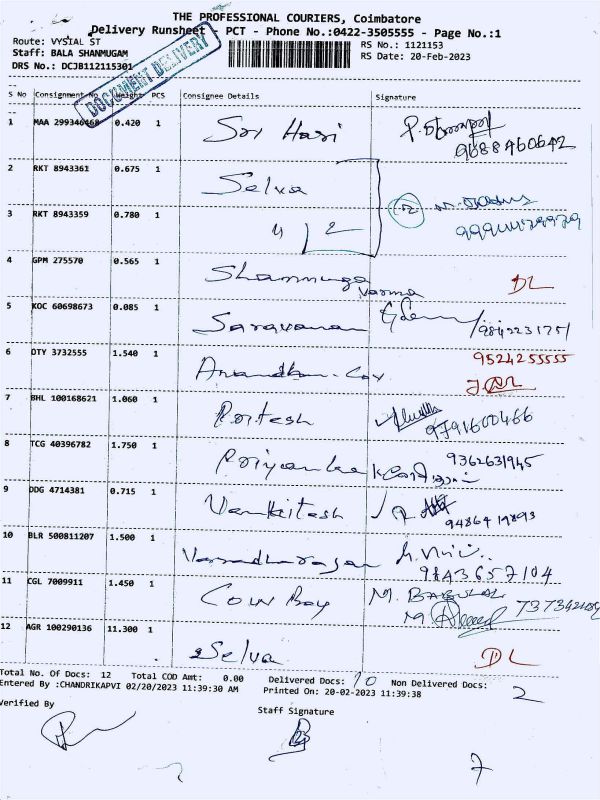 THE PROFESSIONAL COURIERS, Coimbatore
Delivery Runsheet - PCT - Phone No.:0422-3505555 - Page No.:1
Route: VYSIAL ST RS No.: 1121153
Staff: BALA SHANMUGAM RS Date: 20-Feb-2023
DRS No.: DCJB112115301
DOCUMENT DELIVERY
S No Consignment No Weight PCS Consignee Details Signature
1 MAA 299346468 0.420 1 Sri Hari
9688460642
2 RKT 8943361 0.675 1 Selva
3 RKT 8943359 0.780 1 4 | 2
4 GPM 275570 0.565 1 Shanmuga Varma DL
5 KOC 60698673 0.085 1 Saravanan
6 DTY 3732555 1.540 1 9524255555
7 BHL 100168621 1.060 1 Pritesh
9791600466
8 TCG 40396782 1.750 1 Priyanka 9362631945
9 DDG 4714381 0.715 1 Venkitesh
94864 19893
10 BLR 500811207 1.500 1 Varadharajan
9843657104
11 CGL 7009911 1.450 1 Cow Boy
12 AGR 100290136 11.300 1 Selva DL
Total No. Of Docs: 12 Total COD Amt: 0.00 Delivered Docs: 10 Non Delivered Docs: 2
Entered By :CHANDRIKAPVI 02/20/2023 11:39:30 AM Printed On: 20-02-2023 11:39:38
Verified By Staff Signature
7